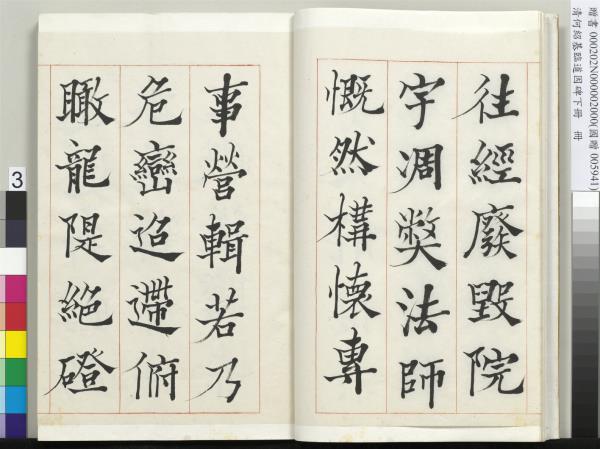 贈書 000202N000002000(國贈 005941)
清何紹基臨道因碑下冊 冊
往經廢毀院
宇凋獘法師
慨然構懷專
事營輯若乃
危巒迢遰俯
瞰龍隄絕磴
3